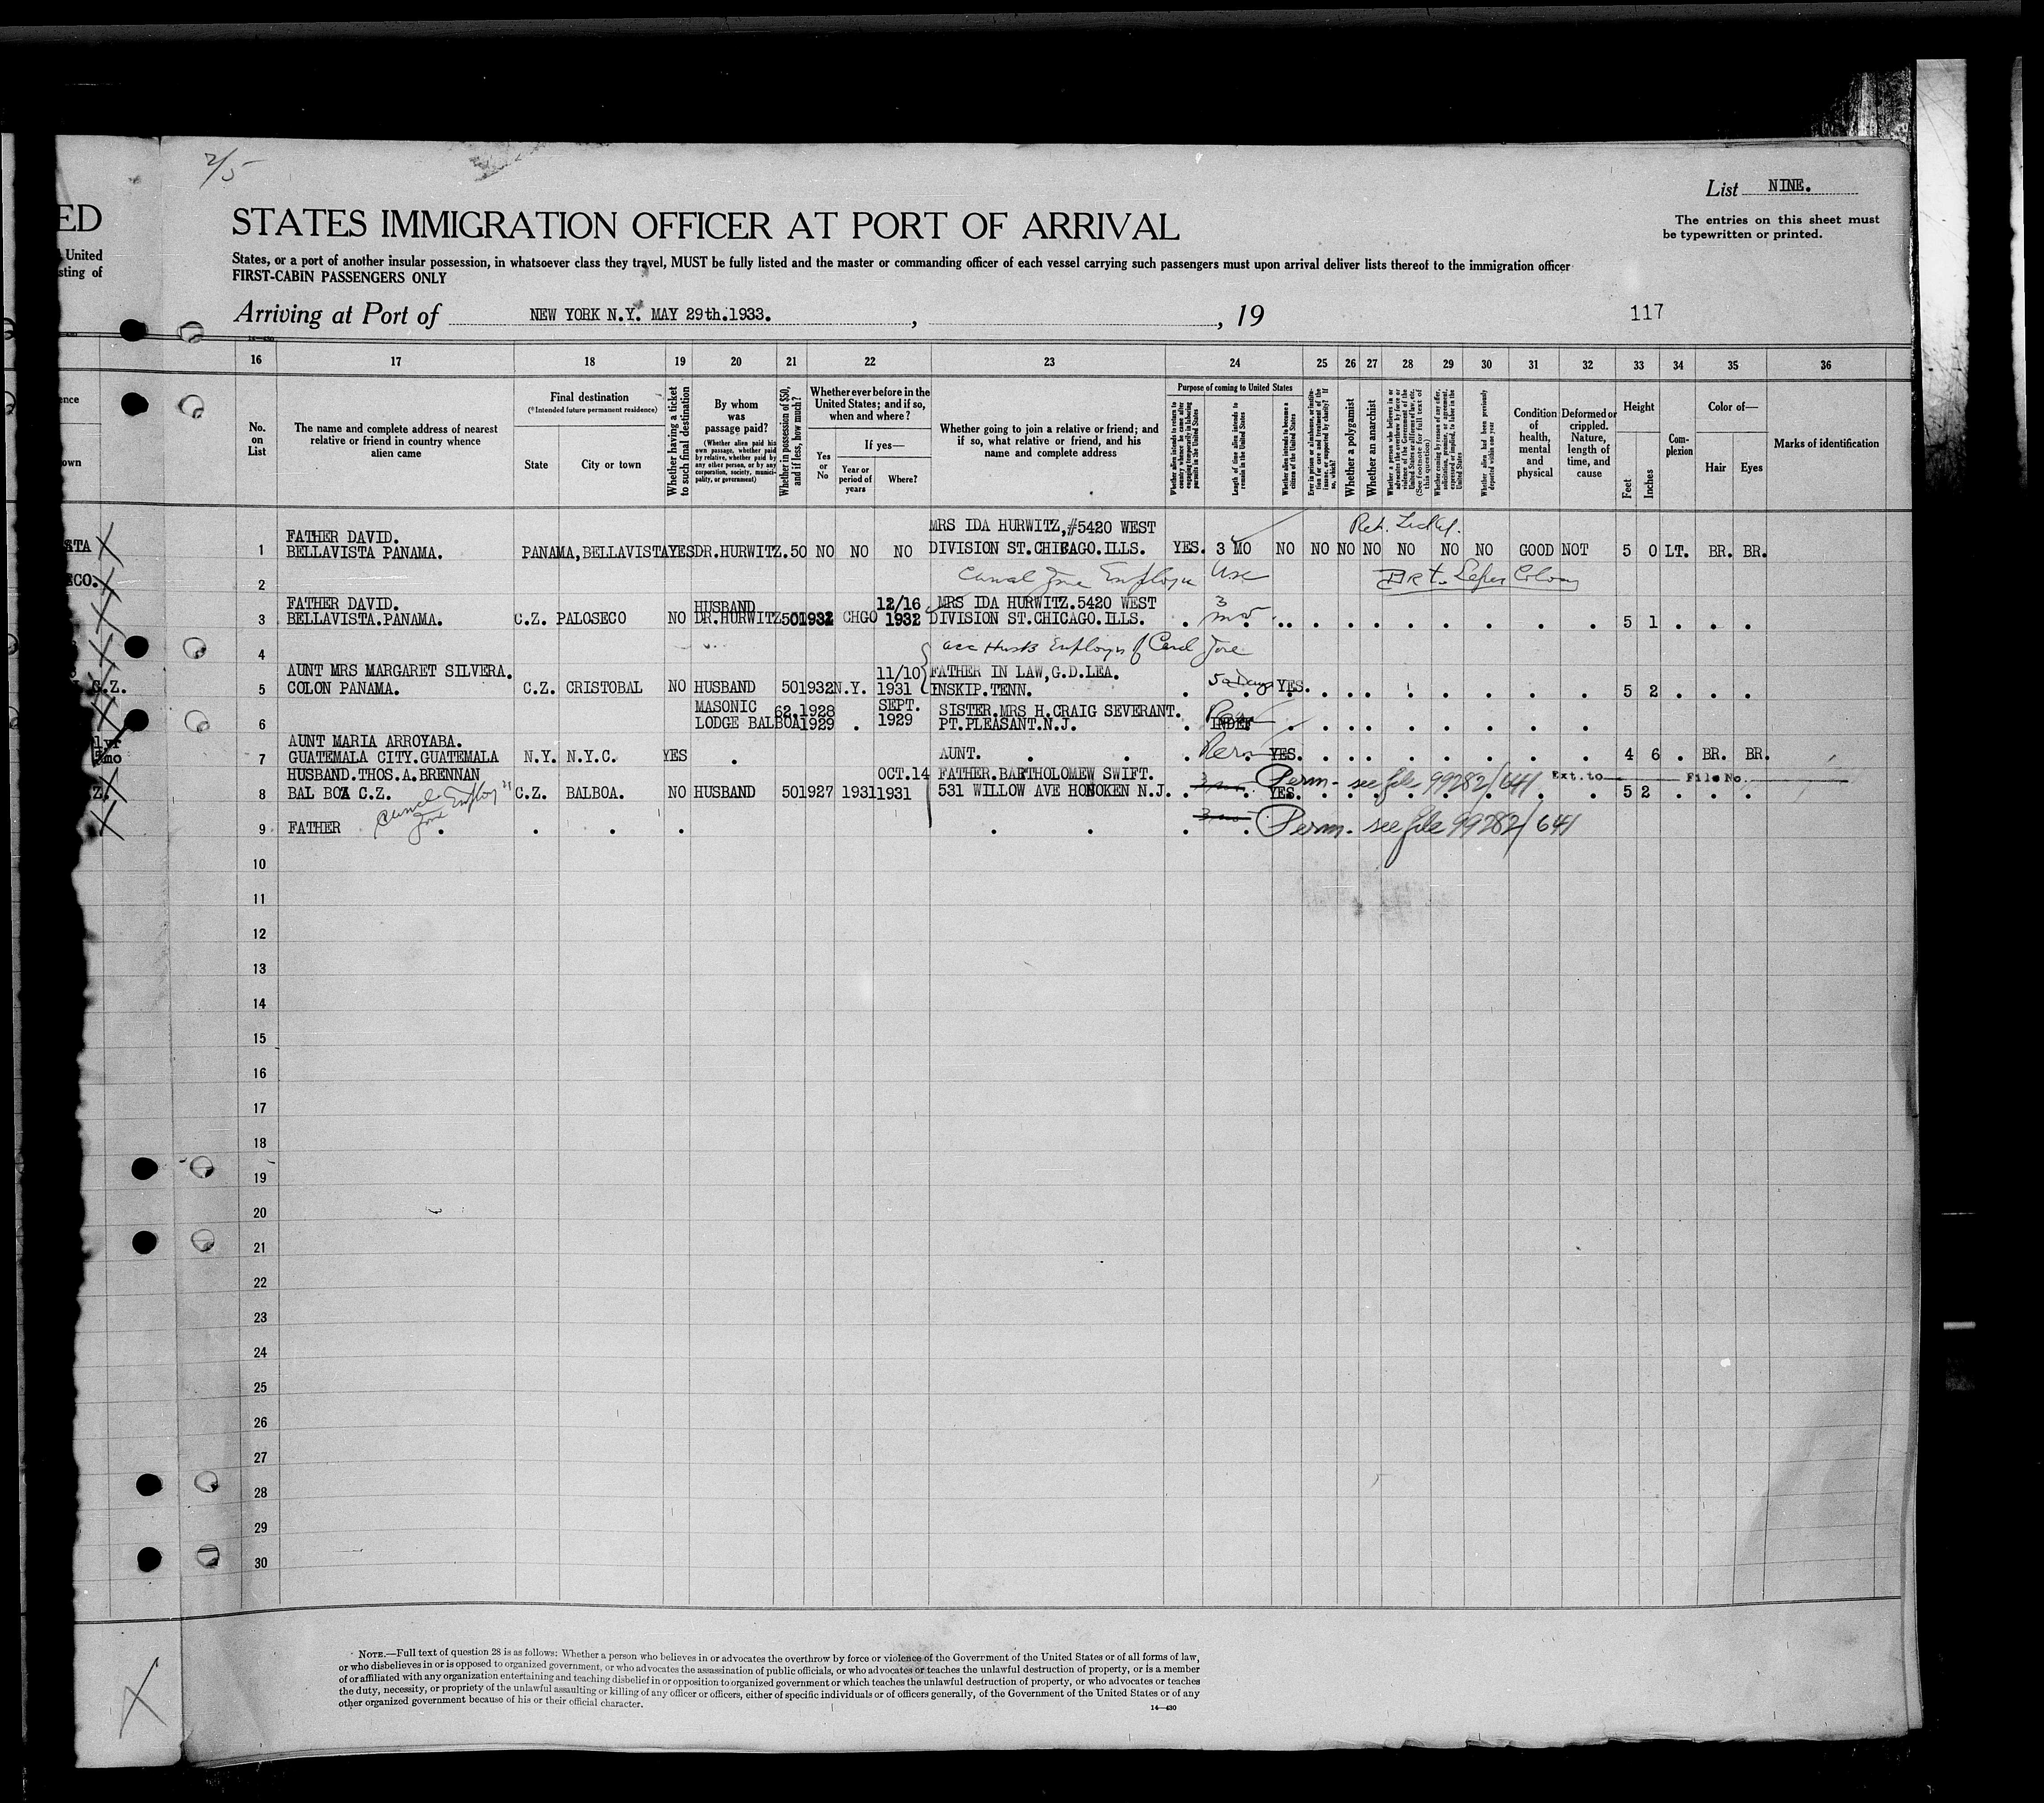 2/5
List NINE.
ED
STATES IMMIGRATION OFFICER AT PORT OF ARRIVAL
The entries on this sheet must
be typewritten or printed.
United
sting of
States, or a port of another insular possession, in whatsoever class they travel, MUST be fully listed and the master or commanding officer of each vessel carrying such passengers must upon arrival deliver lists thereof to the immigration officer
FIRST-CABIN PASSENGERS ONLY
Arriving at Port of NEW YORK N.Y. MAY 29th.1933. , , 19
117
16 17 18 19 20 21 22 23 24 25 26 27 28 29 30 31 32 33 34 35 36
No. on List
The name and complete address of nearest relative or friend in country whence alien came
Final destination
(*Intended future permanent residence)
State
City or town
Whether having a ticket to such final destination
By whom was passage paid?
(Whether alien paid his own passage, whether paid by relative, whether paid by any other person, or by any corporation, society, municipality, or government)
Whether in possession of $50, and if less, how much?
Whether ever before in the United States; and if so, when and where?
Yes or No
If yes—
Year or period of years
Where?
Whether going to join a relative or friend; and if so, what relative or friend, and his name and complete address
Purpose of coming to United States
Whether alien intends to return to country whence he came after engaging temporarily in laboring pursuits in the United States
Length of time alien intends to remain in the United States
Whether alien intends to become a citizen of the United States
Ever in prison or almshouse, or institution for care and treatment of the insane, or supported by charity? If so, which?
Whether a polygamist
Whether an anarchist
Whether a person who believes in or advocates the overthrow by force or violence of the Government of the United States or all forms of law, etc. (See footnote for full text of this question)
Whether coming by reason of any offer, solicitation, promise, or agreement, expressed or implied, to labor in the United States
Whether alien had been previously deported within one year
Condition of health, mental and physical
Deformed or crippled. Nature, length of time, and cause
Height
Feet
Inches
Complexion
Color of—
Hair
Eyes
Marks of identification
Ret. Ticket.
1 FATHER DAVID. BELLAVISTA PANAMA. PANAMA,BELLAVISTA YES DR.HURWITZ. 50 NO NO NO MRS IDA HURWITZ,#5420 WEST DIVISION ST.CHICAGO.ILLS. YES. 3 MO NO NO NO NO NO NO NO GOOD NOT 5 0 LT. BR. BR.
2 Canal Zone Employee Leper Colony
3 FATHER DAVID. BELLAVISTA.PANAMA. C.Z. PALOSECO NO HUSBAND DR.HURWITZ 50 1932 CHGO 12/16 1932 MRS IDA HURWITZ.5420 WEST DIVISION ST.CHICAGO.ILLS. 3 mo 5 1
4 acc Husb Employee of Canal Zone
5 AUNT MRS MARGARET SILVERA. COLON PANAMA. C.Z. CRISTOBAL NO HUSBAND 50 1932 N.Y. 11/10 1931 FATHER IN LAW,G.D.LEA. INSKIP.TENN. Days YES. 5 2
6 MASONIC LODGE BALBOA 62 1928 1929 SEPT. 1929 SISTER.MRS H.CRAIG SEVERANT. PT.PLEASANT.N.J. INDEF
7 AUNT MARIA ARROYABA. GUATEMALA CITY.GUATEMALA N.Y. N.Y.C. YES AUNT. Perm YES. 4 6 BR. BR.
8 HUSBAND.THOS.A.BRENNAN BALBOA C.Z. C.Z. BALBOA. NO HUSBAND 50 1927 1931 OCT.14 1931 FATHER.BARTHOLOMEW SWIFT. 531 WILLOW AVE HOBOKEN N.J. 3 mo YES. Perm - see file 99282/641 Ext. to File No. 5 2
Canal Zone Employ
9 FATHER 3 mo Perm. see file 99282/641
10
11
12
13
14
15
16
17
18
19
20
21
22
23
24
25
26
27
28
29
30
NOTE.—Full text of question 28 is as follows: Whether a person who believes in or advocates the overthrow by force or violence of the Government of the United States or of all forms of law,
or who disbelieves in or is opposed to organized government, or who advocates the assassination of public officials, or who advocates or teaches the unlawful destruction of property, or is a member
of or affiliated with any organization entertaining and teaching disbelief in or opposition to organized government or which teaches the unlawful destruction of property, or who advocates or teaches
the duty, necessity, or propriety of the unlawful assaulting or killing of any officer or officers, either of specific individuals or of officers generally, of the Government of the United States or of any
other organized government because of his or their official character.
14—430